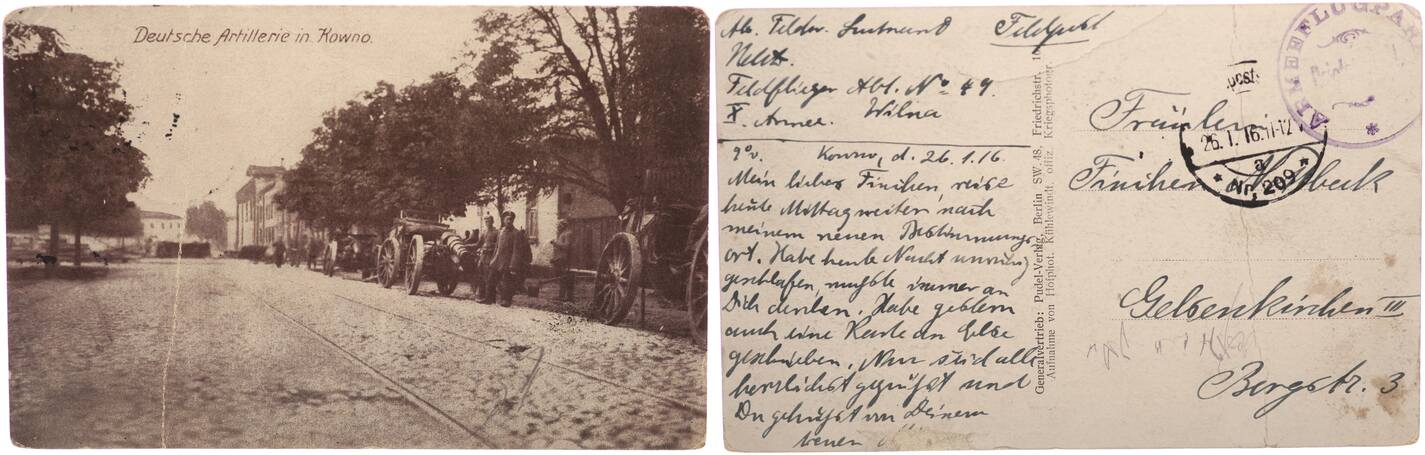 Deutsche Artillerie in Kowno.
Abs. Feldw. Leutnant
Feldpost
Feldflieger Abt. No 49.
X. Armee. Wilna
9° v. Kowno, d. 26.1.16.
Mein liebes Finchen, reise
heute Mittag weiter nach
meinem neuen Bestimmungs
ort. Habe heute Nacht unruhig
geschlafen, mußte immer an
Dich denken. Habe gestern
auch eine Karte an Else
geschrieben. Nun seid alle
herzlichst gegrüßt und
Du geküßt von Deinem
treuen
Generalvertrieb: Pudel-Verlag, Berlin SW. 48, Friedrichstr. 16
Aufnahme von Hofphot. Kühlewindt, offiz. Kriegsphotogr.
ARMEEFLUGPARK
Post
26.1.16.11-12
a
* Nr. 209 *
Fräulein
Finchen
Gelsenkirchen III
Bergstr. 3